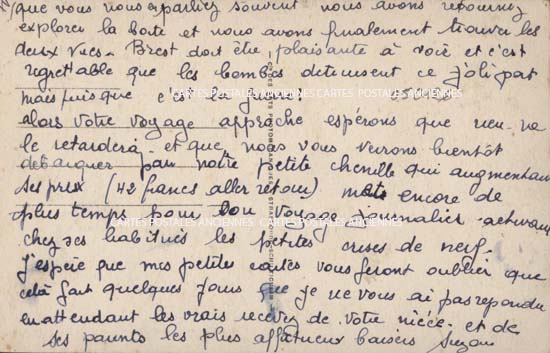 que vous nous en parliez souvent nous avons retourner
explorer la boite et nous avons finalement trouver les
deux vues. Brest doit être plaisante à voir et c'est
regrettable que les bombes détruisent ce joli port
mais puisque c'est la guerre!
CARTES POSTALES ANCIENNES CARTES POSTALES ANCIENNES
alors votre voyage approche espérons que rien ne
le retardera et que nous vous verrons bientôt
débarquer par notre petite chenille qui augmentant
ses prix (42 francs aller retour) met encore de
plus temps pour son voyage journalier activant
CARTES POSTALES ANCIENNES CARTES POSTALES ANCIENNES
chez ses habitués les petites crises de nerf.
J'espère que mes petites cartes vous feront oublier que
celà fait quelques jours que je ne vous ai pas repondu
en attendant les vrais recevez de votre nièce et de
ses parents les plus affectueux baisers Suzon